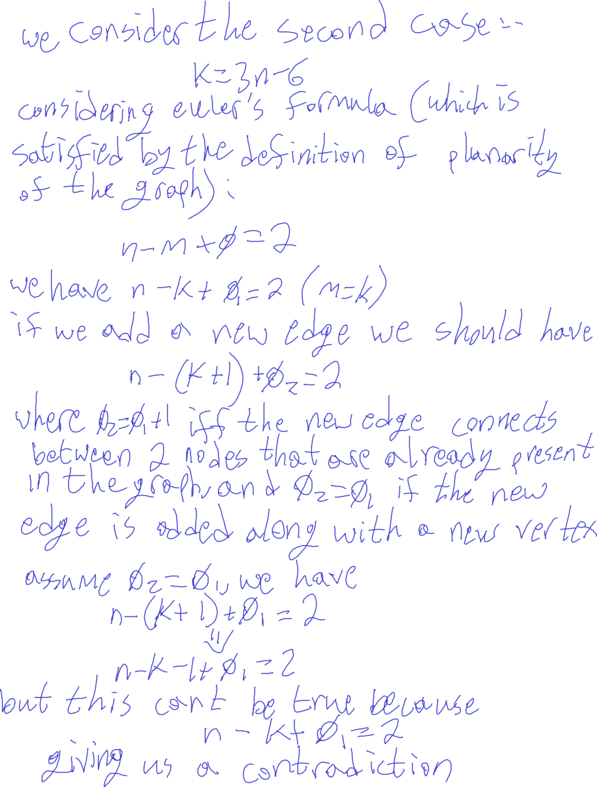 we consider the second case:-
k=3n-6
considering euler's formula (which is
satisfied by the definition of planarity
of the graph):
n-m+φ=2
we have n-k+φ₁=2 (m=k)
if we add a new edge we should have
n-(k+1)+φ₂=2
where φ₂=φ₁+1 iff the new edge connects
between 2 nodes that are already present
in the graph, and φ₂=φ₁ if the new
edge is added along with a new vertex
assume φ₂=φ₁, we have
n-(k+1)+φ₁=2
⇓
n-k-1+φ₁=2
but this can't be true because
n-k+φ₁=2
giving us a contradiction